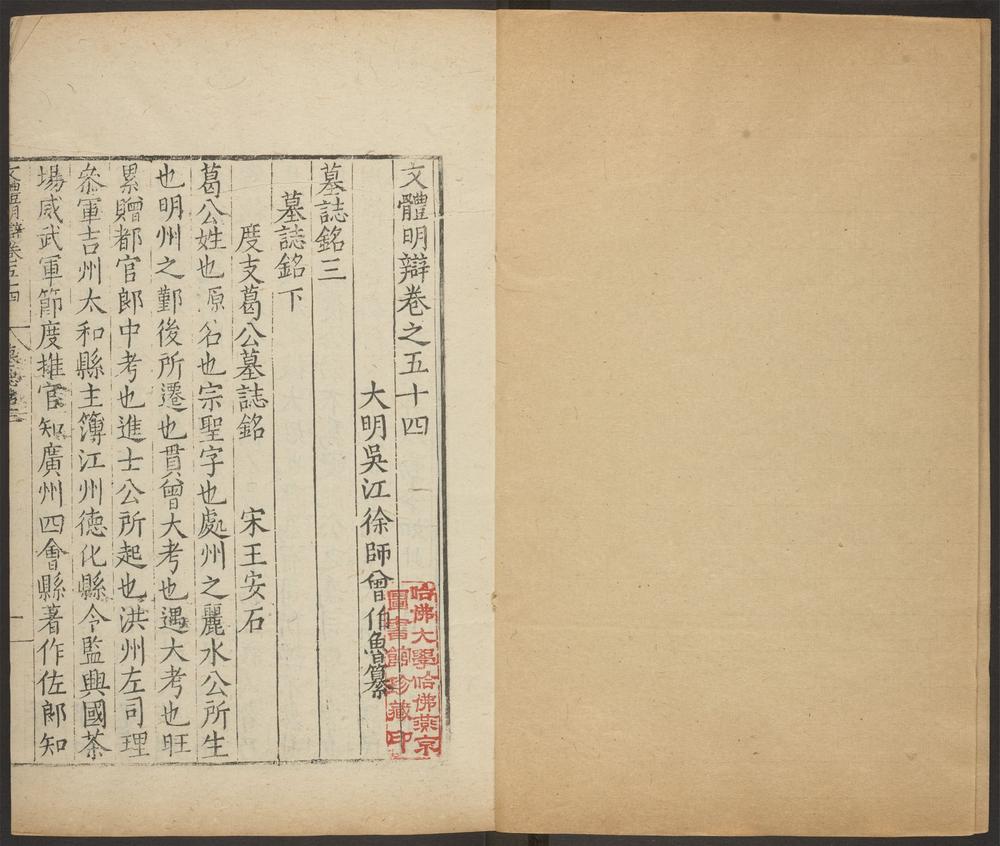 文體明辯卷之五十四
大明吳江徐師曾伯魯纂
墓誌銘三
墓誌銘下
度支葛公墓誌銘 宋王安石
葛公姓也源名也宗聖字也處州之麗水公所生
也明州之鄞後所遷也貫曾大考也遇大考也旺
累贈都官郎中考也進士公所起也洪州左司理
叅軍吉州太和縣主簿江州德化縣令監興國茶
場威武軍節度推官知廣州四會縣著作佐郎知
文體明辯卷五十四
哈佛大學哈佛燕京
圖書館珍藏印